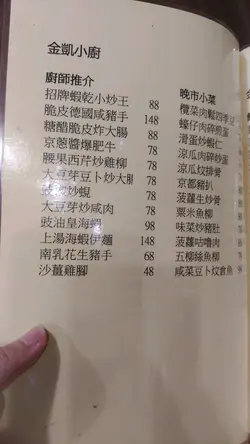 金凱小廚
廚師推介
招牌蝦乾小炒王 88
脆皮德國咸豬手 148
糖醋脆皮炸大腸 88
京蔥醬爆肥牛 78
腰果西芹炒雞柳 78
大豆芽豆卜炒大腸 78
炒蜆 78
大豆芽炒咸肉 78
豉油皇海蝦 98
上湯海蝦伊麵 148
南乳花生豬手 68
沙薑雞腳 48
晚市小菜
欖菜肉鬆四季
蠔仔肉碎煎蛋
滑蛋炒蝦仁
涼瓜肉碎炒蛋
涼瓜炆排骨
京都豬扒
菠蘿生炒骨
粟米魚柳
味菜炒豬肚
菠蘿咕嚕肉
五柳絲魚柳
咸菜豆卜炆倉魚